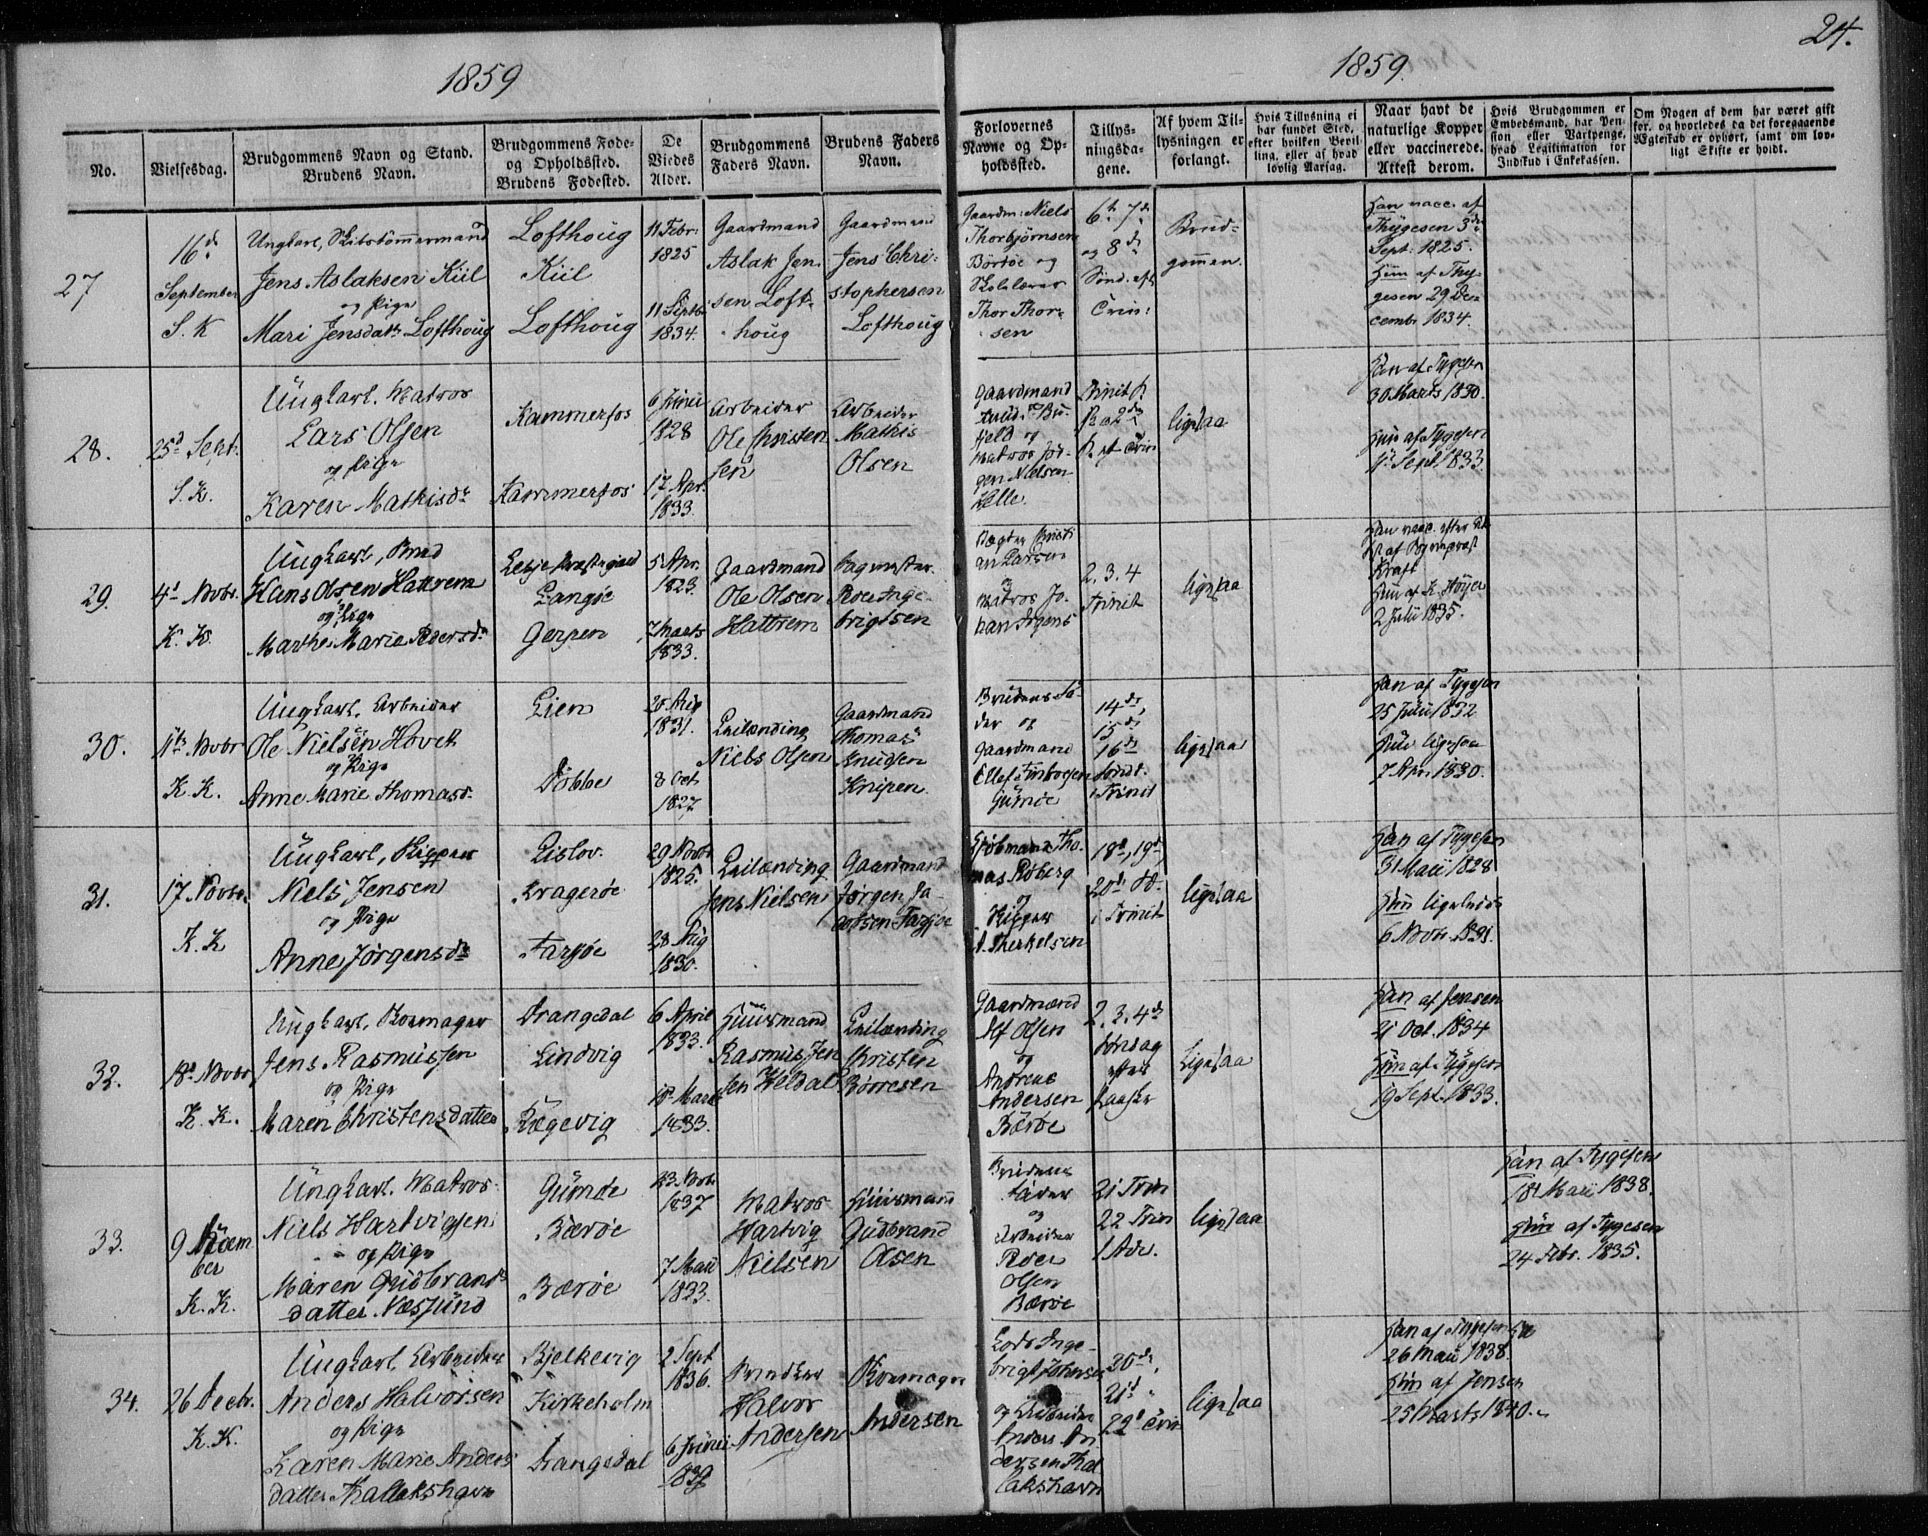 24.
1859
1859.
No.
Vielsesdag.
Brudgommens Navn og Stand.
Brudens Navn.
Brudgommens Føde-
og Opholdssted.
Brudens Fødested.
De
Viedes
Alder.
Brudgommens
Faders Navn.
Brudens Faders
Navn.
Forlovernes
Navne og Op-
holdssted.
Tillys-
ningsda-
gene.
Af hvem Til-
lysningen er
forlangt.
Hvis Tillysning ei
har fundet Sted,
efter hvilken Bevil-
ling, eller af hvad
lovlig Aarsag.
Naar havt de
naturlige Kopper
eller vaccinerede.
Attest derom.
Hvis Brudgommen er
Embedsmand, har Pen-
sion eller Vartpenge,
hvad Legitimation for
Indskud i Enkekassen.
Om Nogen af dem har været gift
før, og hvorledes da det foregaaende
Ægteskab er ophørt, samt om lov-
ligt Skifte er holdt.
27
16d
September
S. K
Ungkarl, Skibstømmermand
Jens Aslaksen Kiil
og Pige
Mari Jensdatt. Lofthoug
Lofthoug
Kiil
Lofthoug
11 Febr:
1825
11 Septb.
1834.
Gaardmand
Aslak Jen-
sen Loft-
houg
Gaardmand
Jens Chri-
stophersen
Lofthoug
Gaardm: Niels
Thorbjørnsen
Børtøe og
Skolelærer
Thor Thor-
sen
6te 7de
og 8de
Sønd. eft.
Trin:
Brud-
gommen.
Han vacc. af
Thygesen 3de
Sept. 1825.
Hun af Thy-
gesen 29 De-
cembr 1834.
28.
25d Sept.
S. K.
Ungkarl. Matros
Lars Olsen
og Pige
Karen Mathisdr
Kammerfos
Kammerfos
6 Junii
1828
17 Apr.
1833.
Arbeider
Ole Christen
sen
Arbeider
Mathis
Olsen
Gaardmand
og
Matros Jør-
gen Nielsen
ligesaa
Han af Tygesen
30 Marts 1830.
Hun af Tygesen
Sept. 1833.
29.
4d Novbr.
K. K.
Ungkarl,
Hans Olsen Hattrem
og Pige
Marthe Marie Pedersdr
Langøe
Gerpen
5 Apr.
1823.
7 Marts
1833.
Gaardmand
Ole Olsen
Hattrem
Sagmester
Peder Inge-
brigtsen
Larsen
og
Matros Jo-
han
2. 3. 4
Trinit
ligesaa
Han vacc. efter
Kraft
Hun af K. Høyer
2 Julii 1835.
30.
11te Novbr
K. K.
Ungkarl. Arbeider
Ole Nielsen Hovet
og Pige
Anne Marie Thomasd.
Lien
Dobbe
20 Aug
1831.
8 Oct
1827
Leilænding
Niels Olsen
Gaardmand
Thomas
Knudsen
Knipen.
Brudens Fa-
der og
Gaardmand
Ellef
Gumøe
14de
15de
16de
Søndt.
i Trinit
ligesaa
Han af Tygesen
25 Julii 1832
Hun ligesaa
7 Apr. 1830.
31.
17 Novbr.
K. K
Ungkarl, Skipper
Niels Jensen
og Pige
Anne Jørgensdr
Lislov.
Kragerøe
Farsjøe
29 Novbr
1825.
28 Aug
1830.
Leilænding
Jens Nielsen
Gaardmand
Jørgen Ja-
cobsen Farsjøe
Kjøbmand Tho-
mas Roberg
og
Skipper
A. Therkelsen
18d, 19d,
20de S.
i Trinit
ligesaa
Han af Tygesen
31 Maii 1828
Hun ligeledes
6 Novr. 1831.
32.
18d Novbr
K. K.
Ungkarl, Skomager
Jens Rasmussen
og Pige
Maren Christensdatter
Drangedal
Lindvig
Kægevig
6 April
1833.
18d Marts
1833.
Huusmand
Rasmus Jen
sen Heldal
Leilænding
Christen
Børresen
Gaardmand
Alf Olsen
og
Andreas
Andersen
Bærøe
2. 3. 4de
Søndag
efter
Paaske
Ligesaa
Han af Jensen
21 Oct. 1834
Hun af Tygesen
19 Sept. 1833.
33.
9 Novem
ber
K. K.
Ungkarl. Matros
Niels Hartvigsen
og Pige
Maren Gudbrands
datter Næssund
Gumøe
Bærøe
Bærøe
23 Novb.
1837
7 Maii
1833.
Matros
Hartvig
Nielsen
Huusmand
Gudbrand
Olsen
Brudens
Fader
og
Arbeider
Peder
Olsen
Bærøe
21 Trin
22 Trin
1 Adv.
ligesaa
Han af Tygesen
18d Maii 1838.
Hun af Tygesen
24 Febr. 1835.
34.
26 Decbr.
K. K.
Ungkarl Arbeider
Anders Halvorsen
og Pige
Karen Marie Anders
datter Thallakshavn
Bjelkevig
Kirkeholm
Drangedal
2 Sept
1836.
6 Junii
1839
Snedker
Halvor
Andersen
Skomager
Andersen
Lods Inge-
brigt Johnsen
og Arbeider
Anders An-
dersen Thal
lakshavn
20de,
21d
22d Trin
ligesaa
Han af Tygesen
26 Maii 1838.
Hun af Jensen
25 Marts 1840.